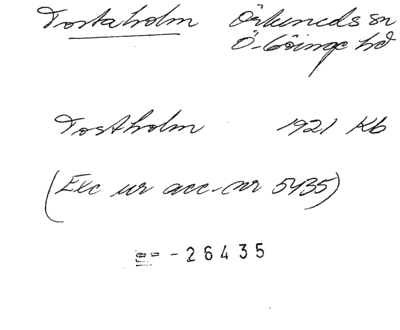 Tostaholm Örkeneds sn
Ö-Göinge hd
Tostholm 1921 Kb
(Exc ur acc.-nr 5435)
-26435